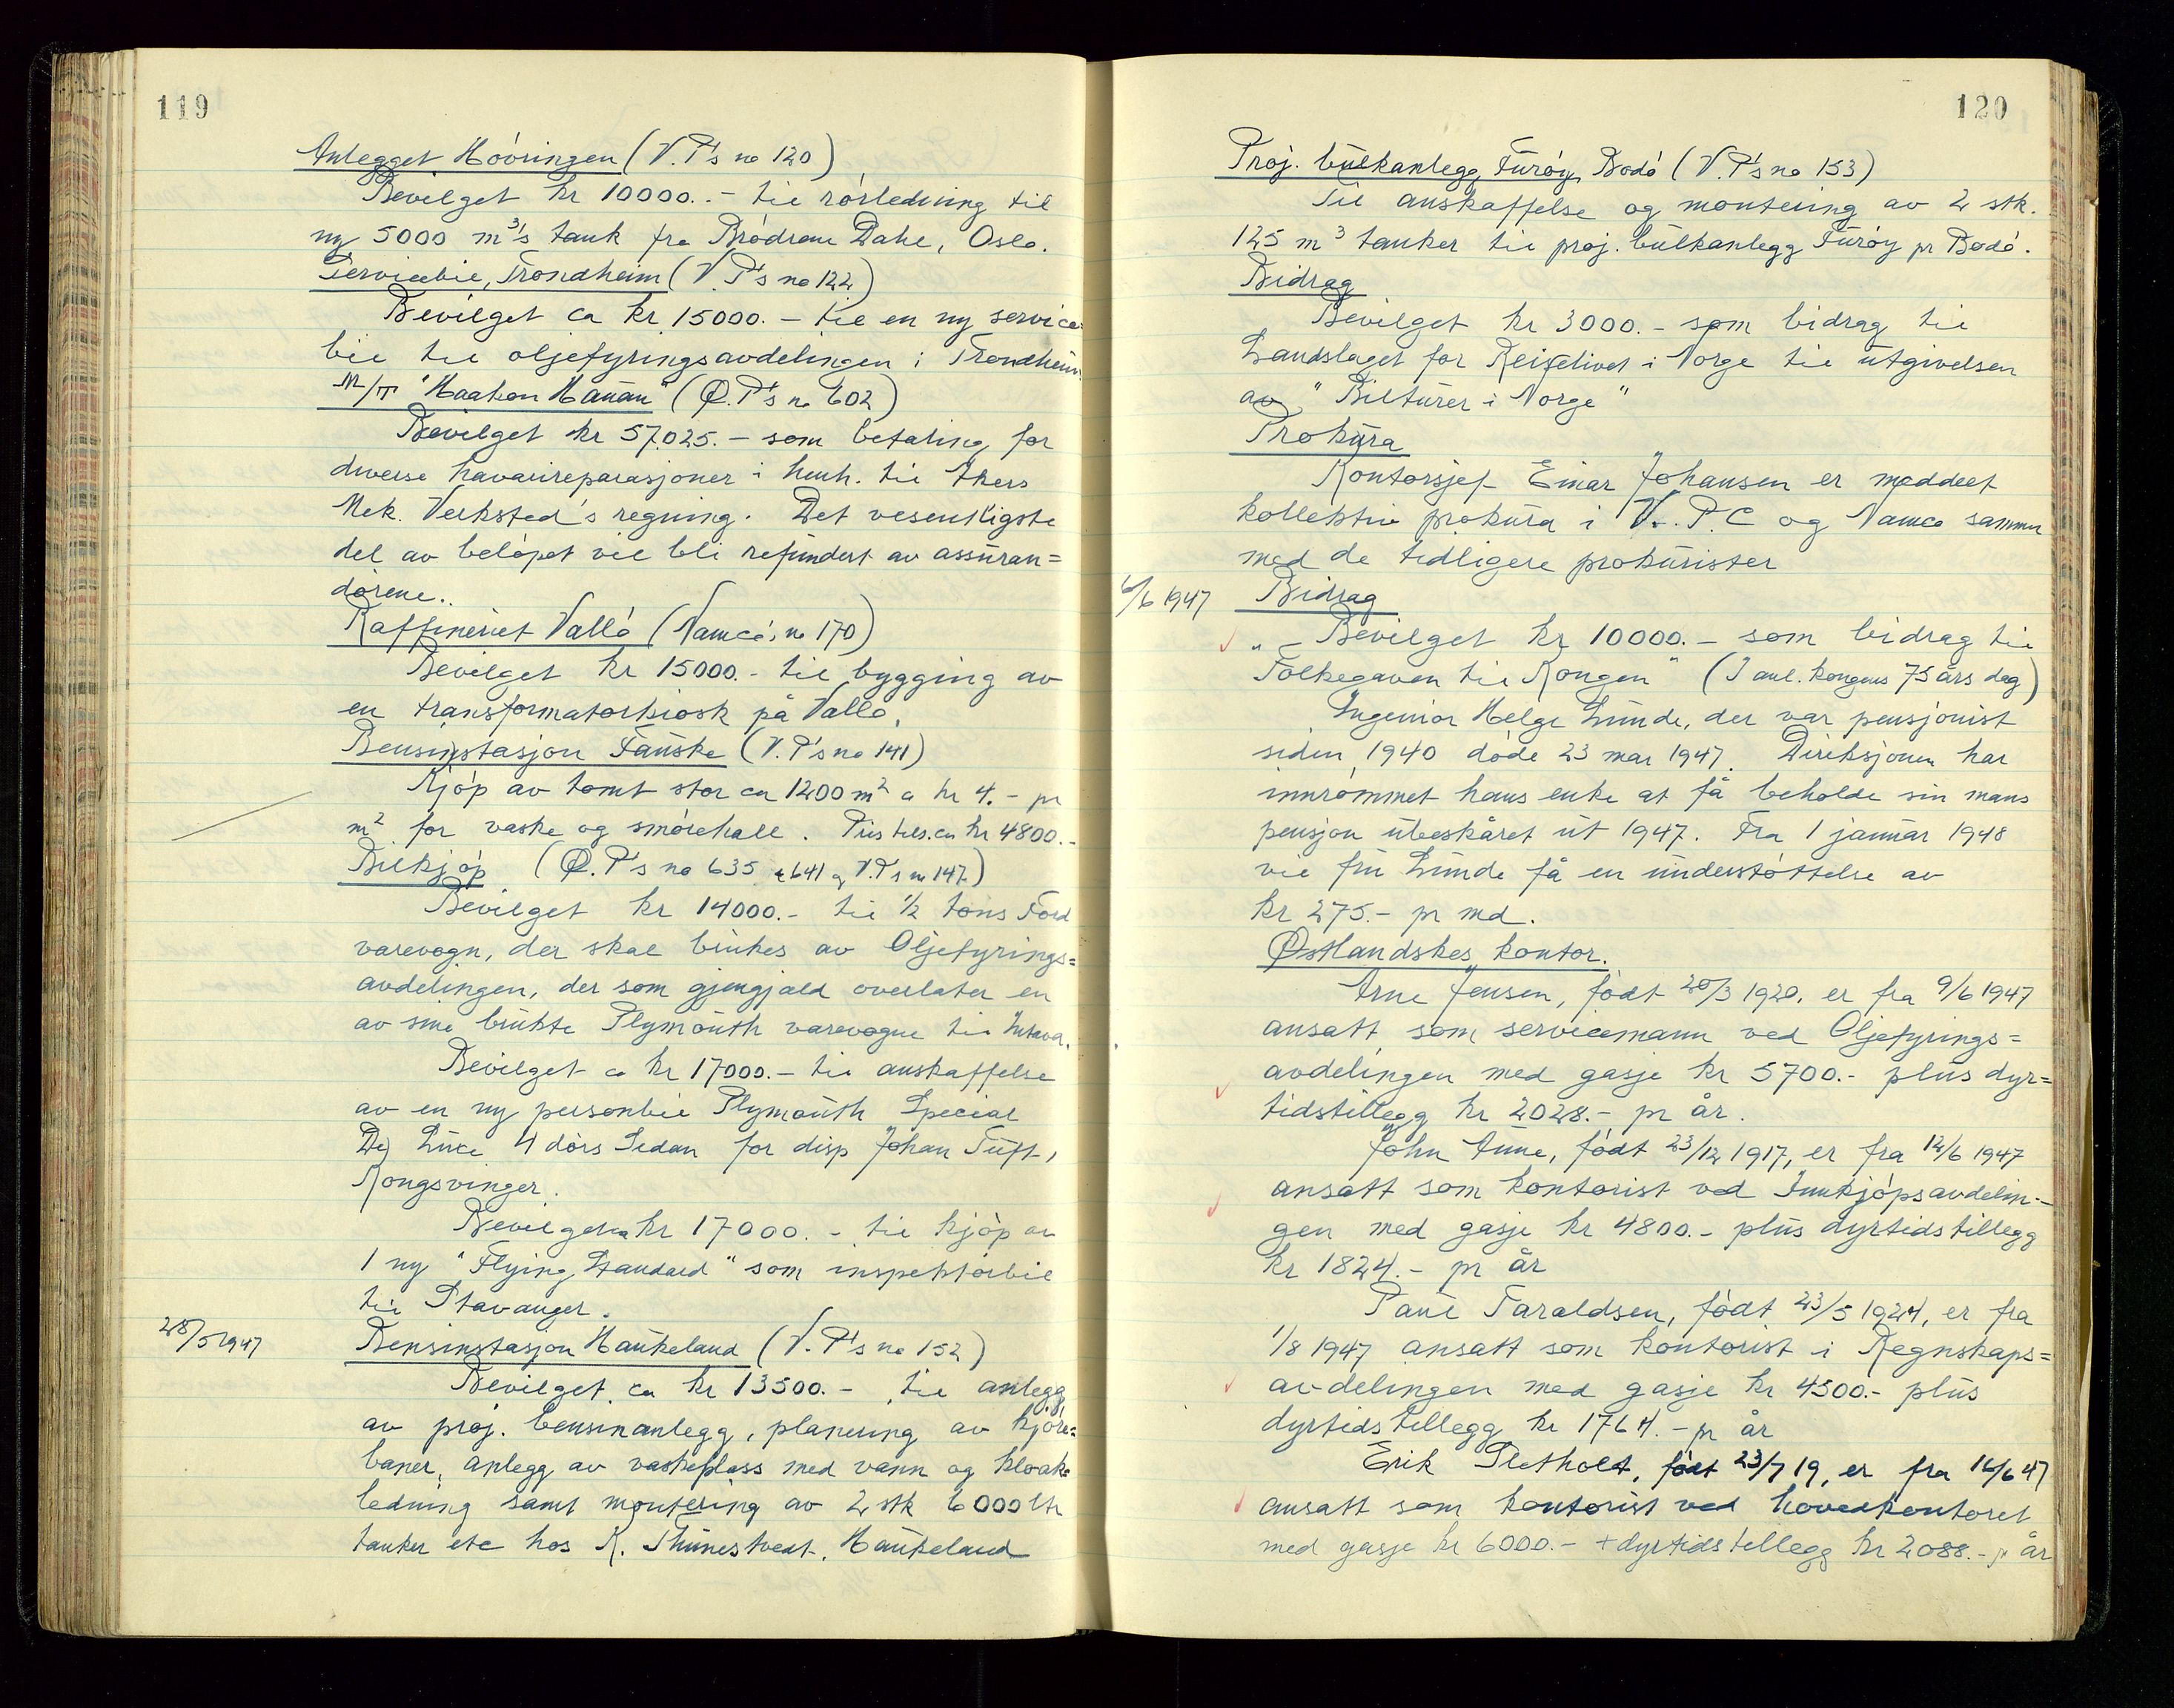 119
Anlegget Høvringen (V.P's no 120)
Bevilget kr 10000.- til rørledning til
ny 5000 m³'s tank fra Brødrene Dahl, Oslo.
Servicebil, Trondheim (V.P's no 122)
Bevilget ca kr 15000.- til en ny service
bil til oljefyringsavdelingen i Trondheim.
M/T "Haakon Hauan" (Ø.P's no 602)
Bevilget kr 57.025.- som betaling for
diverse havarireparasjoner i henh. til Akers
Mek. Verksted's regning. Det vesentligste
del av beløpet vil bli refundert av assuran=
dørene..
Raffineriet Vallø (Namco's no 170)
Bevilget kr 15000.- til bygging av
en transformatorkiosk på Vallø.
Bensinstasjon Fauske (V.P's no 141)
Kjøp av tomt stor ca 1200 m² a kr 4.- pr
m² for vaske og smørehall. Pris tils. ca kr 4800.-
Bilkjøp (Ø.P's no 635 & 641 og V.P's no 147)
Bevilget kr 14000.- til ½ tons Ford
varevogn, der skal brukes av Oljefyrings=
avdelingen, der som gjengjæld overlater en
av sine brukte Plymouth varevogne til Intava.
Bevilget ca kr 17000.- til anskaffelse
av en ny personbil Plymouth Special
De Luxe 4 dørs Sedan for disp Johan Tuft,
Kongsvinger.
Bevilget ca kr 17000.- til kjøp av
1 ny "Flying Standard" som inspektørbil
til Stavanger.
28/5 1947
Bensinstasjon Haukeland (V.P's no 152)
Bevilget ca kr 13500.- til anlegg
av proj. bensinanlegg, planering av kjøre=
baner, anlegg av vaskeplass med vann og kloak=
ledning samt montering av 2 stk 6000 ltr
tanker etc hos K. Thunestvedt, Haukeland
120
Proj. bulkanlegg, Furøy, Bodø (V.P's no 153)
Til anskaffelse og montering av 2 stk.
125 m³ tanker til proj. bulkanlegg Furøy pr Bodø.
Bidrag
Bevilget kr 3000.- som bidrag til
Landslaget for Reiselivet i Norge til utgivelsen
av "Bilturer i Norge"
Prokura
Kontorsjef Einar Johansen er meddelt
kollektiv prokura i V.P.C og Namco sammen
med de tidligere prokurister
6/6 1947
Bidrag
Bevilget kr 10000.- som bidrag til
"Folkegaven til Kongen" (I anl. kongens 75 års dag)
Ingeniør Helge Lunde, der var pensjonist
siden 1940 døde 23 mar 1947. Direksjonen har
innrømmet hans enke at få beholde sin mans
pensjon ubeskåret ut 1947. Fra 1 januar 1948
vil fru Lunde få en understøttelse av
kr 275.- pr md.
Østlandskes kontor.
Arne Jensen, født 20/3 1920, er fra 9/6 1947
ansatt som servicemann ved Oljefyrings=
avdelingen med gasje kr 5700.- plus dyr=
tidstillegg kr 2028.- pr år.
John Aune, født 23/12 1917, er fra 12/6 1947
ansatt som kontorist ved Innkjøpsavdelin-
gen med gasje kr 4800.- plus dyrtidstillegg
kr 1824.- pr år
Paul Taraldsen, født 23/5 1924, er fra
1/8 1947 ansatt som kontorist i Regnskaps=
avdelingen med gasje kr 4500.- plus
dyrtidstillegg kr 1764.- pr år
Erik Sletholt, født 23/7 19, er fra 16/6 47
ansatt som kontorist ved hovedkontoret
med gasje kr 6000.- + dyrtidstillegg kr 2088.- pr år